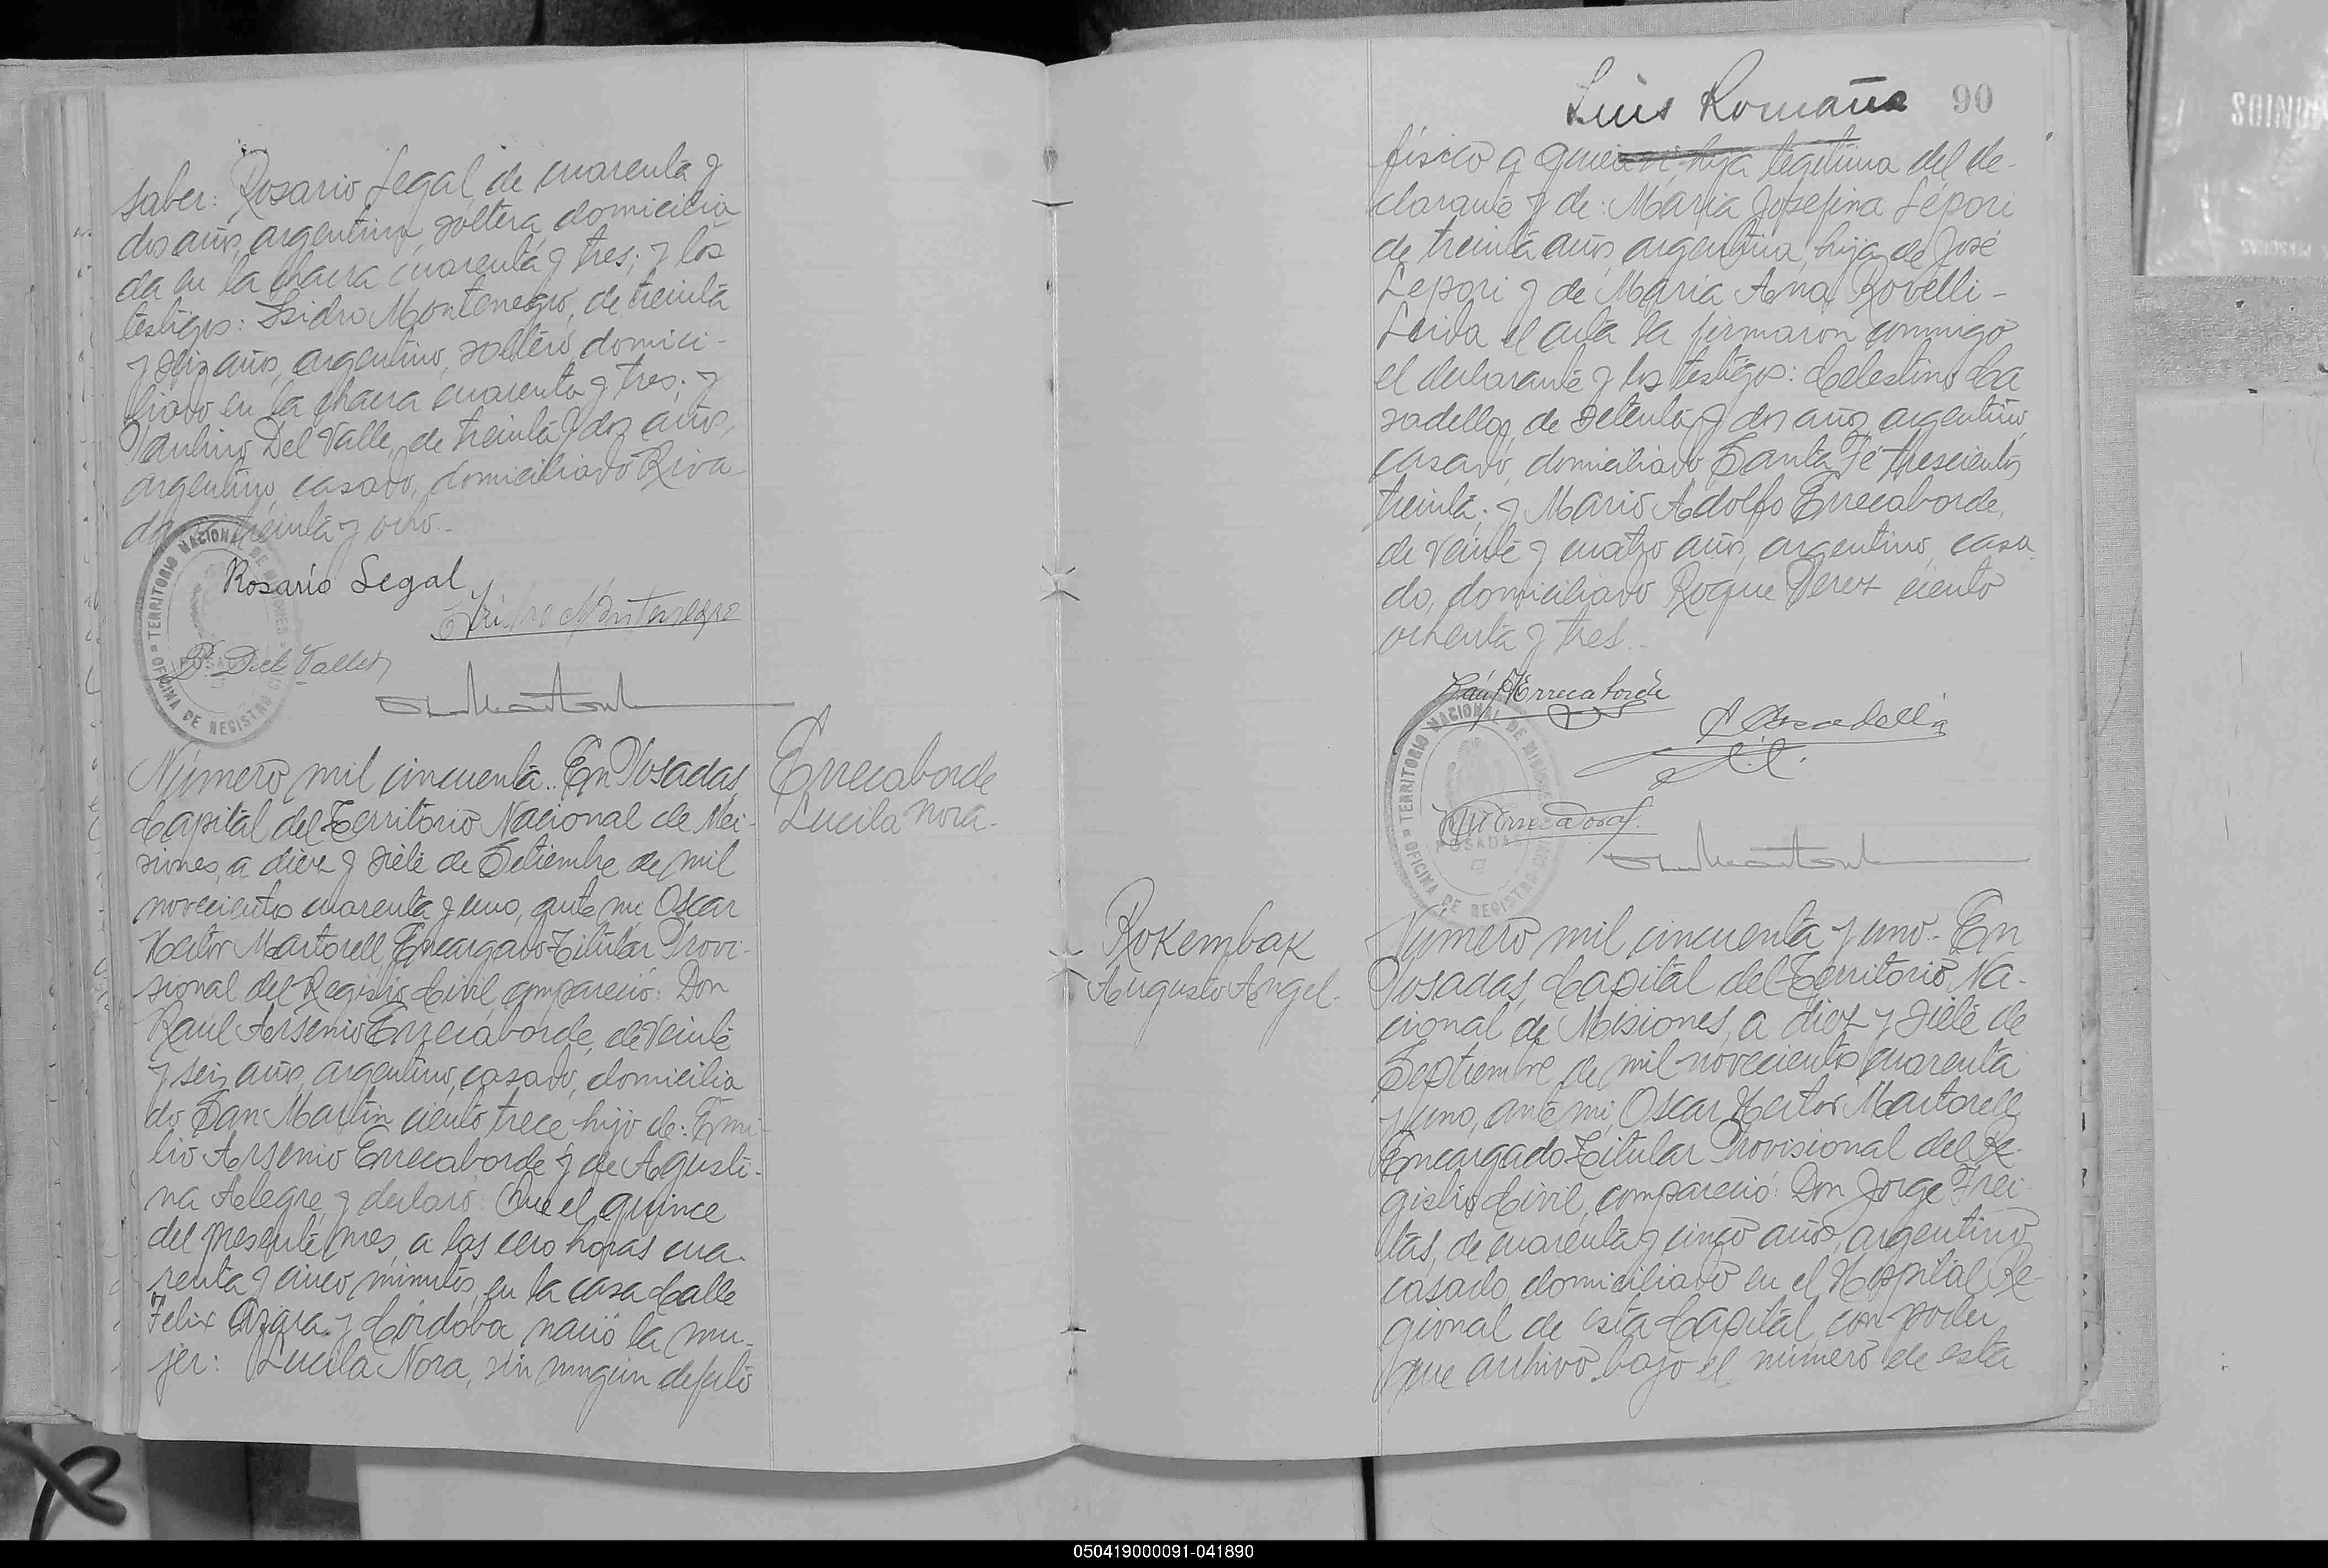 saber: Rosario Legal, de cuarenta y
dos años, argentina, soltera, domicilia
da en la chacra cuarenta y tres; y los
testigos: Isidro Montenegro, de treinta
y seis años, argentino, soltero, domici-
liado en la chacra cuarenta y tres; y
Paulino Del Valle, de treinta y dos años,
argentino, casado, domiciliado Riva
treinta y ocho.-
Rosario Legal
Isidro Montenegro
P. Del Valle
TERRITORIO NACIONAL DE MISIONES
OFICINA DE REGISTRO CIVIL
POSADAS
Número mil cincuenta.. En Posadas,
Capital del Territorio Nacional de Mi-
siones, a diez y siete de Setiembre de mil
novecientos cuarenta y uno, ante mi Oscar
Hector Martorell, Encargado Titular Provi-
sional del Registro Civil, compareció: Don
Raul Arsenio Errecaborde, de veinte
y seis años, argentino, casado, domicilia
do San Martin ciento trece, hijo de: Emi-
lio Arsenio Errecaborde y de Agusti-
na Alegre, y declaró: Que el quince
del presente mes, a las cero horas cua-
renta y cinco minutos, en la casa Calle
Felix Azara y Córdoba nació la mu-
jer: Lucila Nora, sin ningun defecto
Errecaborde
Lucila Nora.-
Luis Romaña
90
físico a hija legitima del de-
clarante y de: Maria Josefina Lépori
de treinta años, argentina, hija de José
Lepori y de Maria Ana Rovelli -
Leida el acta la firmaron conmigo
el declarante y los testigos: Celestino Ca
sadella, de setenta y dos años, argentino,
casado, domiciliado Santa Fé trescientos
treinta; y Mario Adolfo Errecaborde,
de veinte y cuatro años, argentino, casa
do, domiciliado Roque Perez ciento
ochenta y tres.-
Raul Errecaborde
C Casadella
TERRITORIO NACIONAL DE MISIONES
OFICINA DE REGISTRO CIVIL
POSADAS
Rokembak
Augusto Angel.-
Número mil cincuenta y uno.- En
Posadas, Capital del Territorio Na-
cional de Misiones, a diez y siete de
Septiembre de mil novecientos cuarenta
y uno, ante mi, Oscar Hector Martorell,
Encargado Titular Provisional del Re-
gistro Civil, compareció: Don Jorge Frei
tas, de cuarenta y cinco años, argentino,
casado, domiciliado en el Hospital Re-
gional de esta Capital, con poder
que archivo bajo el número de esta
050419000091-041890